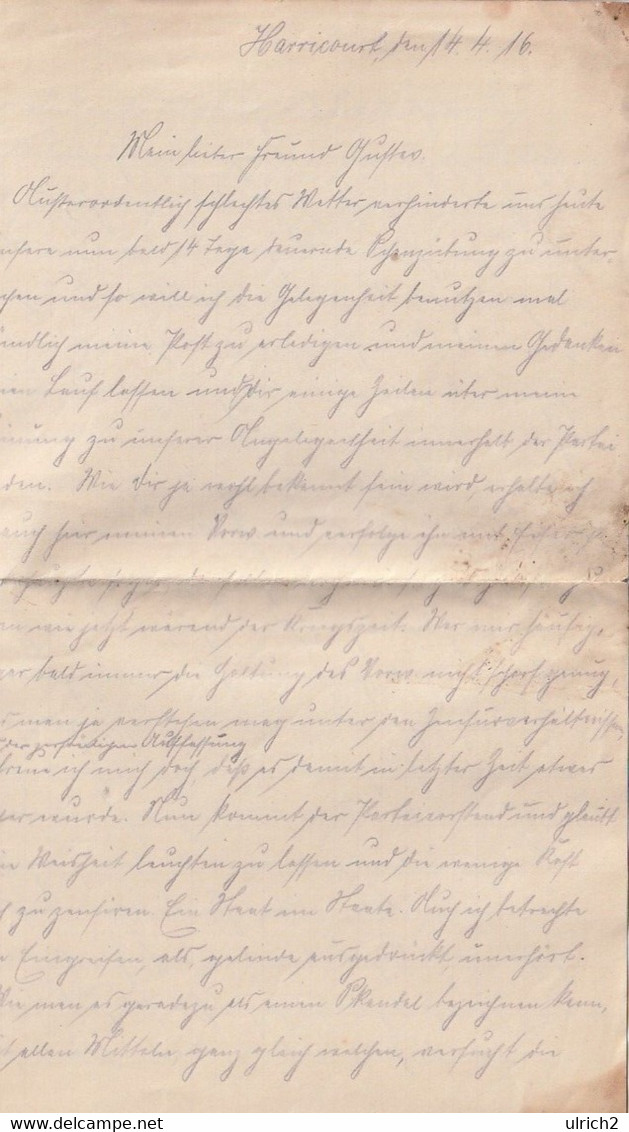 Harricourt, den 14. 4. 16.
Mein lieber Freund Gustav.
Ausserordentlich schlechtes Wetter verhinderte uns heute
unsere nun bald 14 Tage dauernde zu unter-
chen und so will ich die Gelegenheit benutzen mal
ündlich meine Post zu erledigen und meinen Gedanken
en Lauf lassen und Dir einige Zeilen über meine
inung zu unserer Angelegenheit innerhalb der Partei
den. Wie Dir ja wohl bekannt sein wird, erhalte ich
auch hier meinen Vorw. und verfolge ihn mit
wie jetzt wärend der Kriegszeit. War mir häufig,
ger bald immer die Haltung des Vorw. nicht scharf genug,
s man ja verstehen mag unter den Zensurverhältnissen,
der Auffassung
freue ich mich doch, daß es damit in letzter Zeit etwas
er wurde. Nun kommt der Parteivorstand und glaubt
Weisheit leuchten zu lassen und die wenige Kost
h zu zensiren. Ein Staat im Staate. Auch ich betrachte
Eingreifen, als, gelinde ausgedrückt, unerhört.
Wie man es geradezu als einen Skandal bezeichnen kann,
t allen Mitteln, ganz gleich welchen, versucht die
ulrich2